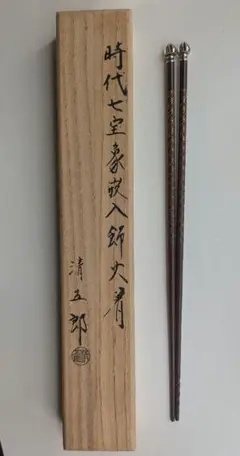 時代七宝象嵌入飾火箸
清五郎